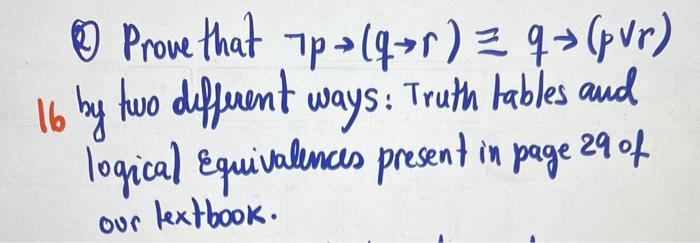 ② Prove that ¬p→(q→r) ≡ q→(p∨r)
16 by two different ways: Truth tables and
logical Equivalences present in page 29 of
our textbook.